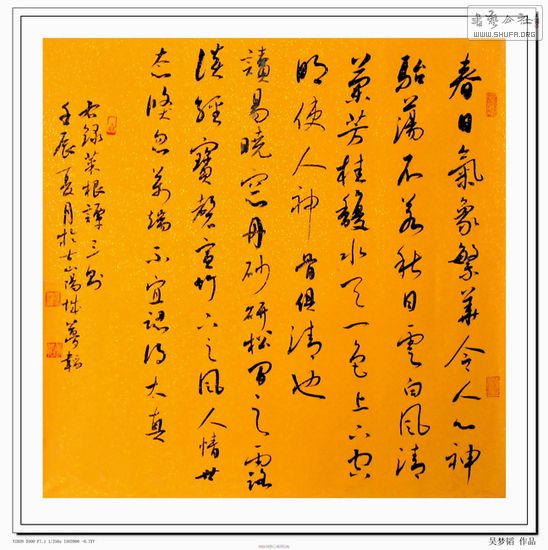 春日氣象繁華令人心神
駘蕩不若秋日雲白風清
蘭芳桂馥水天一色上下空
明使人神骨俱清也
讀易曉窗丹砂研松間之露
談經寶磬宣竹下之風人情世
态倏忽萬端不宜認得太真
右錄菜根譚三則
壬辰夏月於古嵩城夢韜
書藝公社
WWW.SHUFA.ORG
吴梦韬 作品